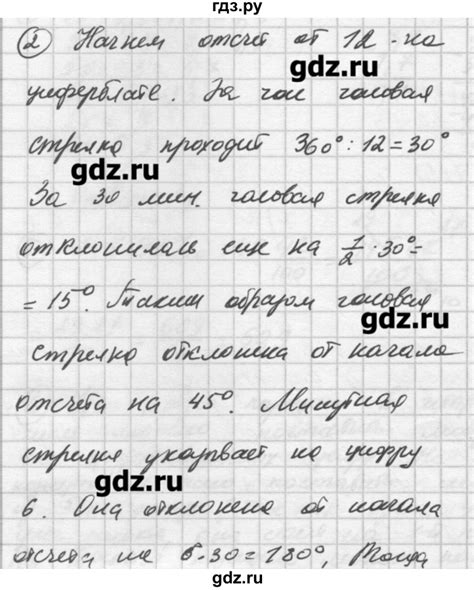 гдз.ру
② Начнем отсчет от 12 на
gdz.ru
циферблате. За час часовая
стрелка проходит 360° : 12 = 30°
gdz.ru
За 30 мин. часовая стрелка
отклонилась еще на 1/2 · 30° =
= 15°. Таким образом часовая
gdz.ru
стрелка отклонена от начала
отсчета на 45°. Минутная
стрелка указывает на цифру
gdz.ru
6. Она отклонена от начала
отсчета на 6·30 = 180°, Тогда
gdz.ru